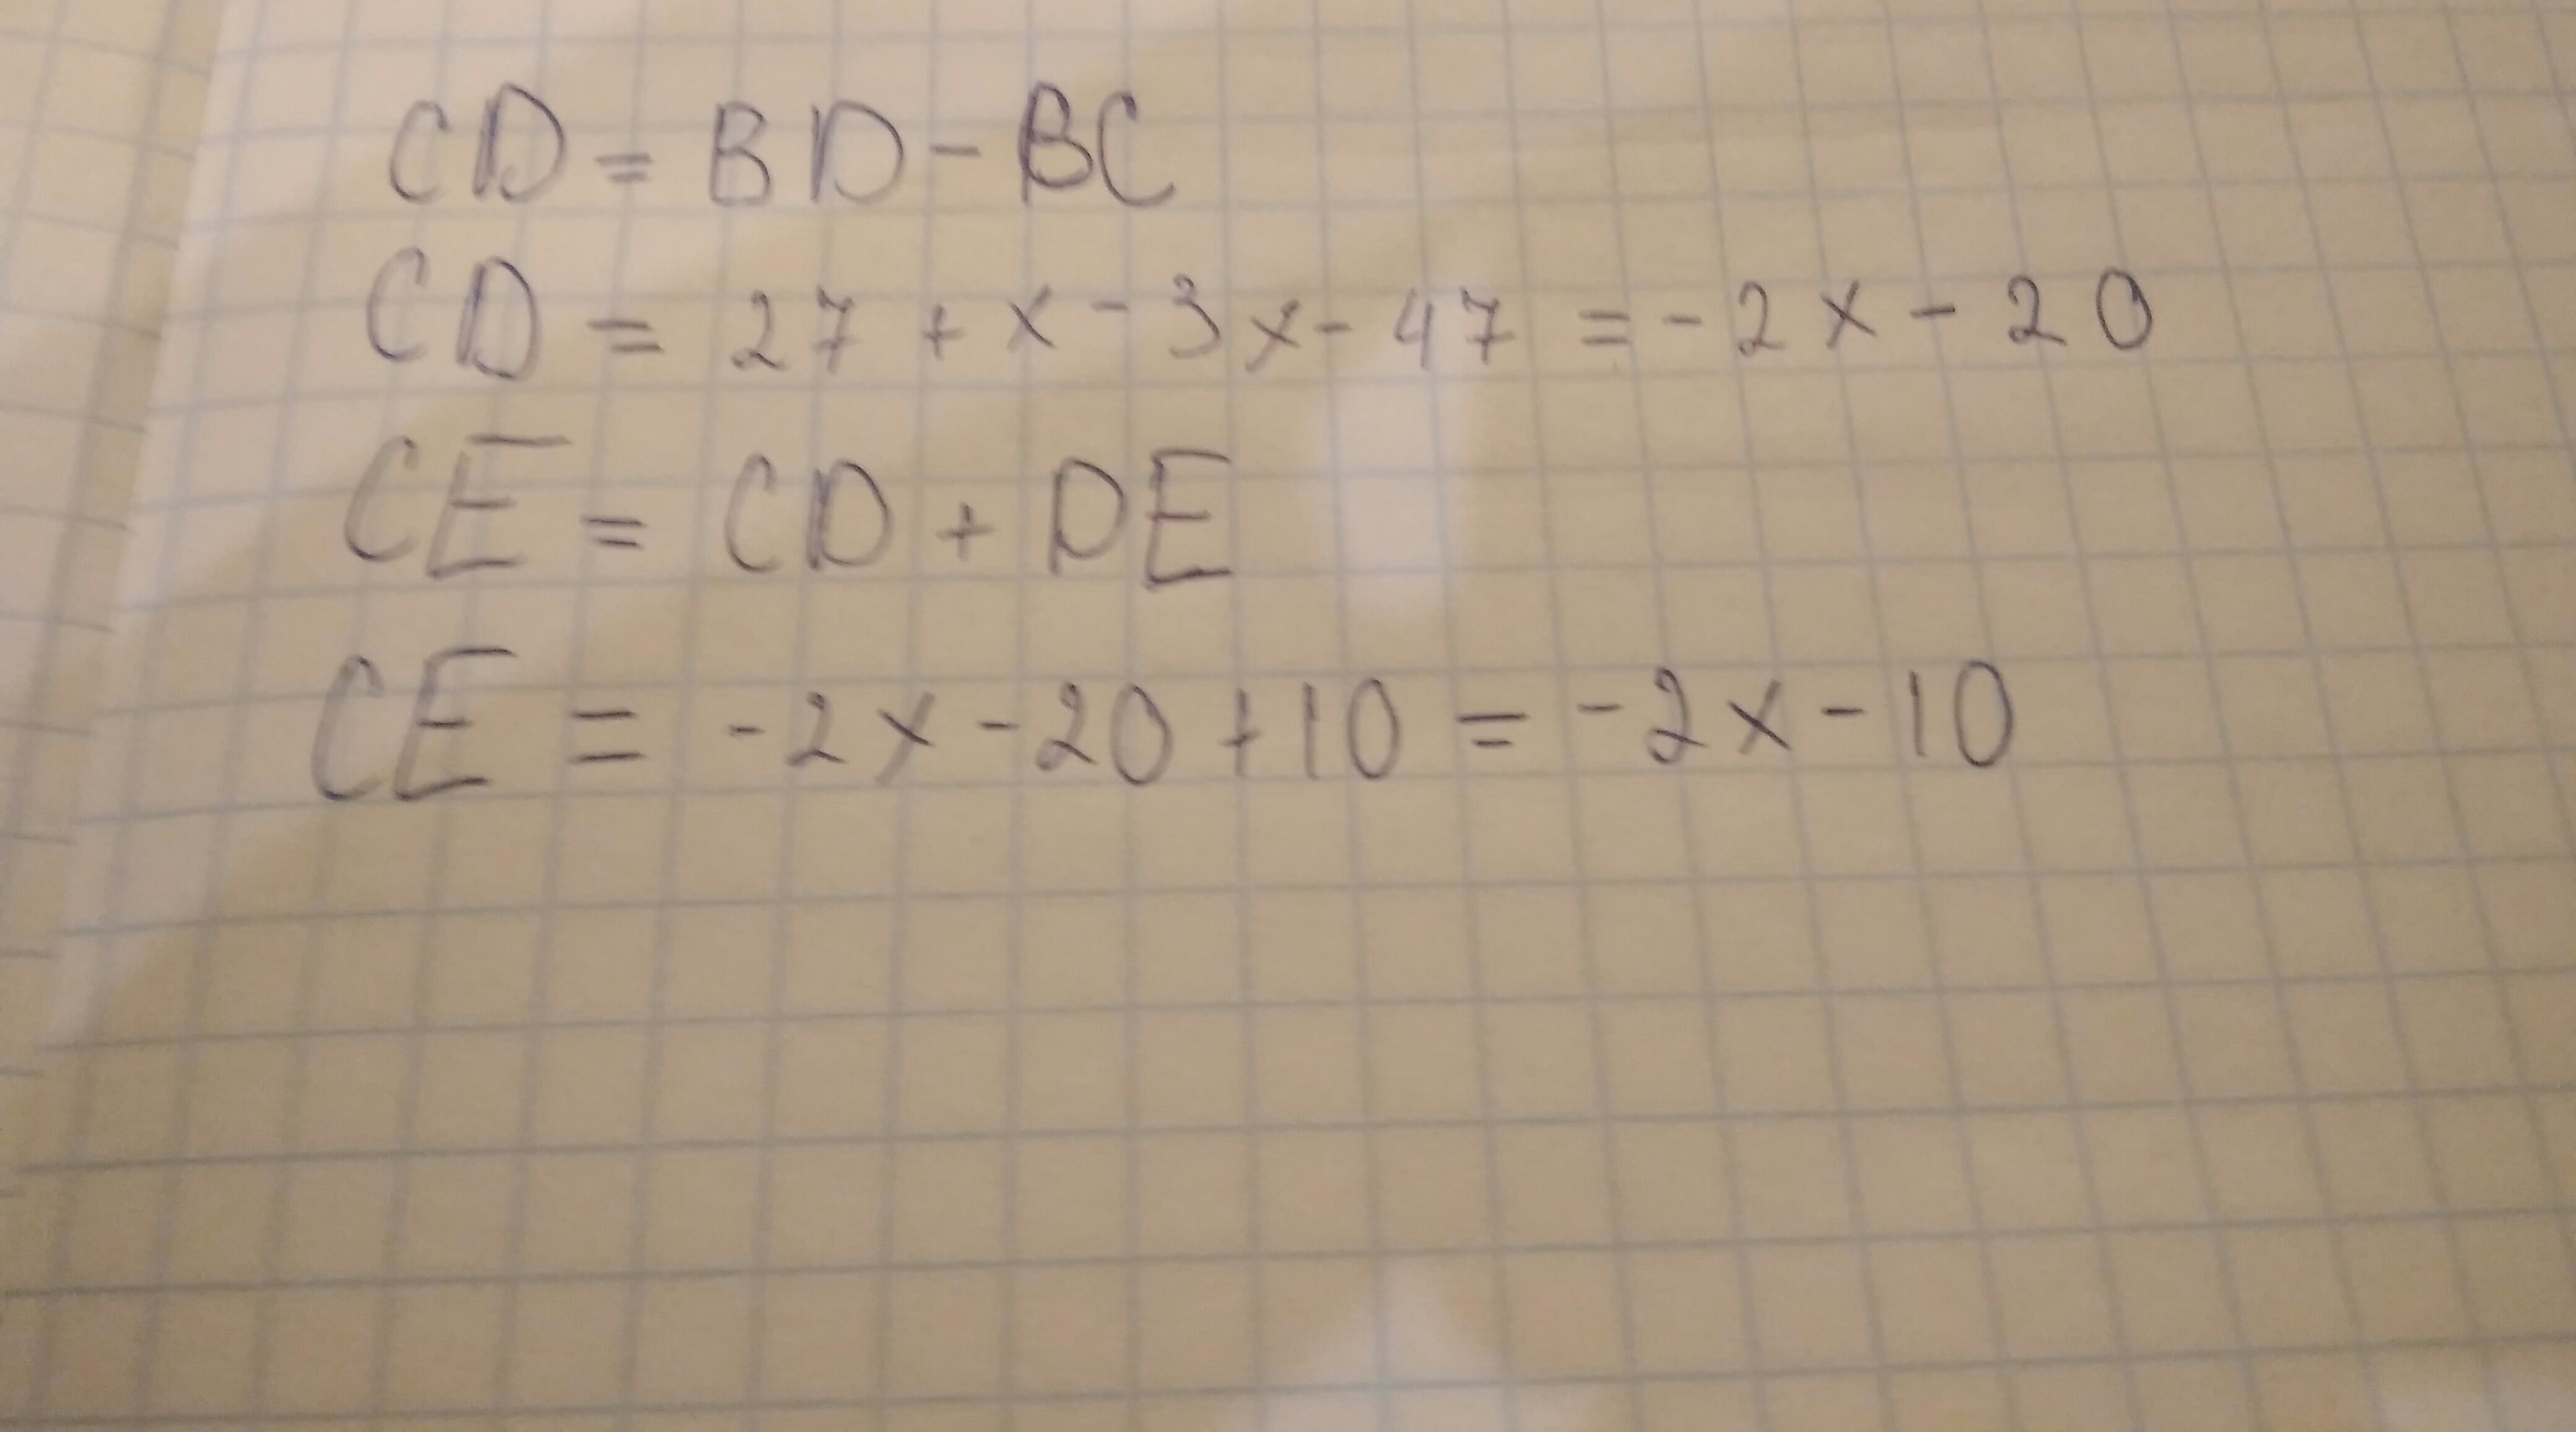 CD = BD - BC
CD = 27 + x - 3x - 47 = -2x - 20
CE = CD + DE
CE = -2x - 20 + 10 = -2x - 10